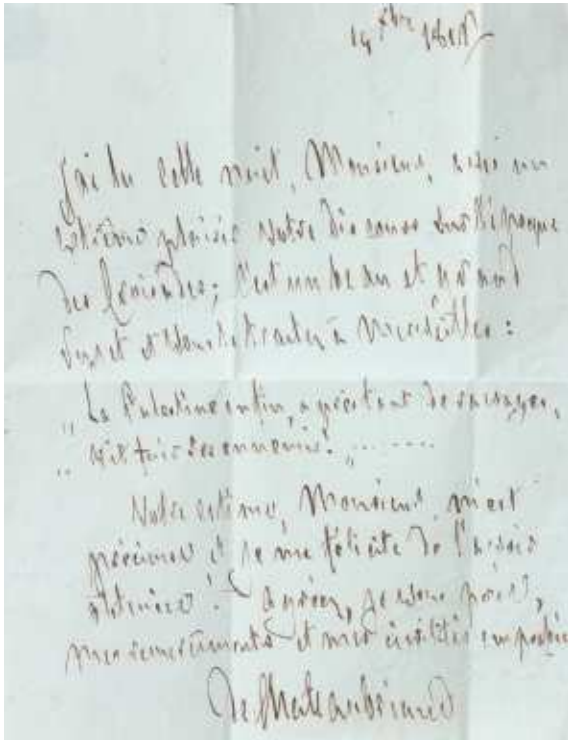 J'ai lu cette nuit, Monsieur, avec un
extrême plaisir votre discours sur l'époque
des Croisades; c'est un beau et grand
sujet et vous le traitez à merveille:
„ La Palestine enfin, après tant de ravages,
„ vit fuir ses ennemis. „ ........
Votre estime, Monsieur, m'est
précieuse et je me félicite de l'avoir
obtenue. Agréez, je vous prie,
mes remerciements et mes civilités empressées
de Chateaubriand